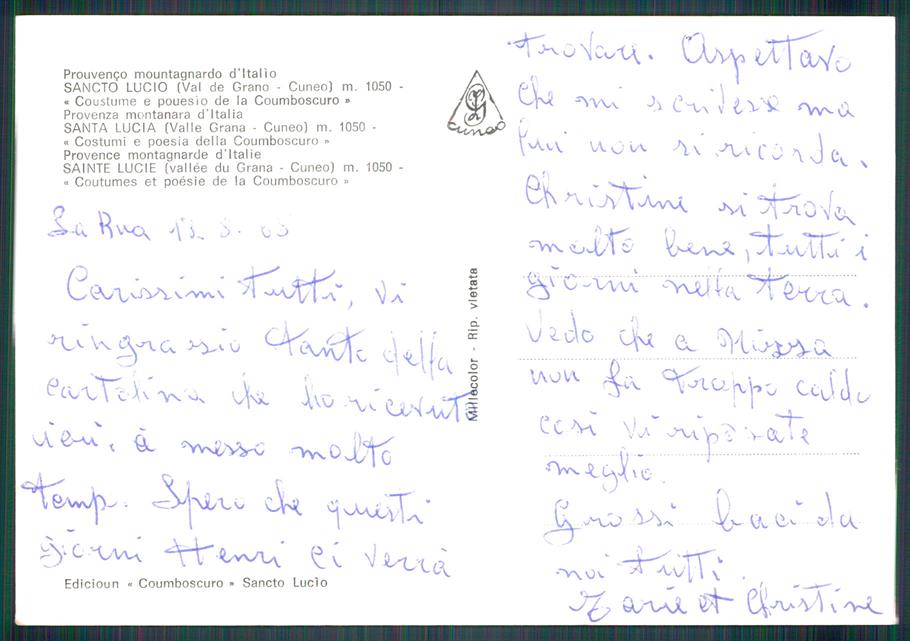 Prouvenço mountagnardo d'Italìo
SANCTO LUCIO (Val de Grano - Cuneo) m. 1050 -
« Coustume e pouesìo de la Coumboscuro »
Provenza montanara d'Italia
SANTA LUCIA (Valle Grana - Cuneo) m. 1050 -
« Costumi e poesia della Coumboscuro »
Provence montagnarde d'Italie
SAINTE LUCIE (vallée du Grana - Cuneo) m. 1050 -
« Coutumes et poésie de la Coumboscuro »
cuneo
La Rua
Carissimi tutti, vi
ringrasio tanto della
cartolina che ho ricevuto
ieri, à messo molto
temp. Spero che questi
giorni Henri ci verrà
Edicioun « Coumboscuro » Sancto Lucìo
Millecolor - Rip. vietata
trovare. Aspettavo
che mi scrivesse ma
lui non si ricorda.
Christine si trova
molto bene, tutti i
giorni nella terra.
Vedo che a Nizza
non fa troppo caldo
così vi riposate
meglio.
Grossi baci da
noi tutti.
et Christine